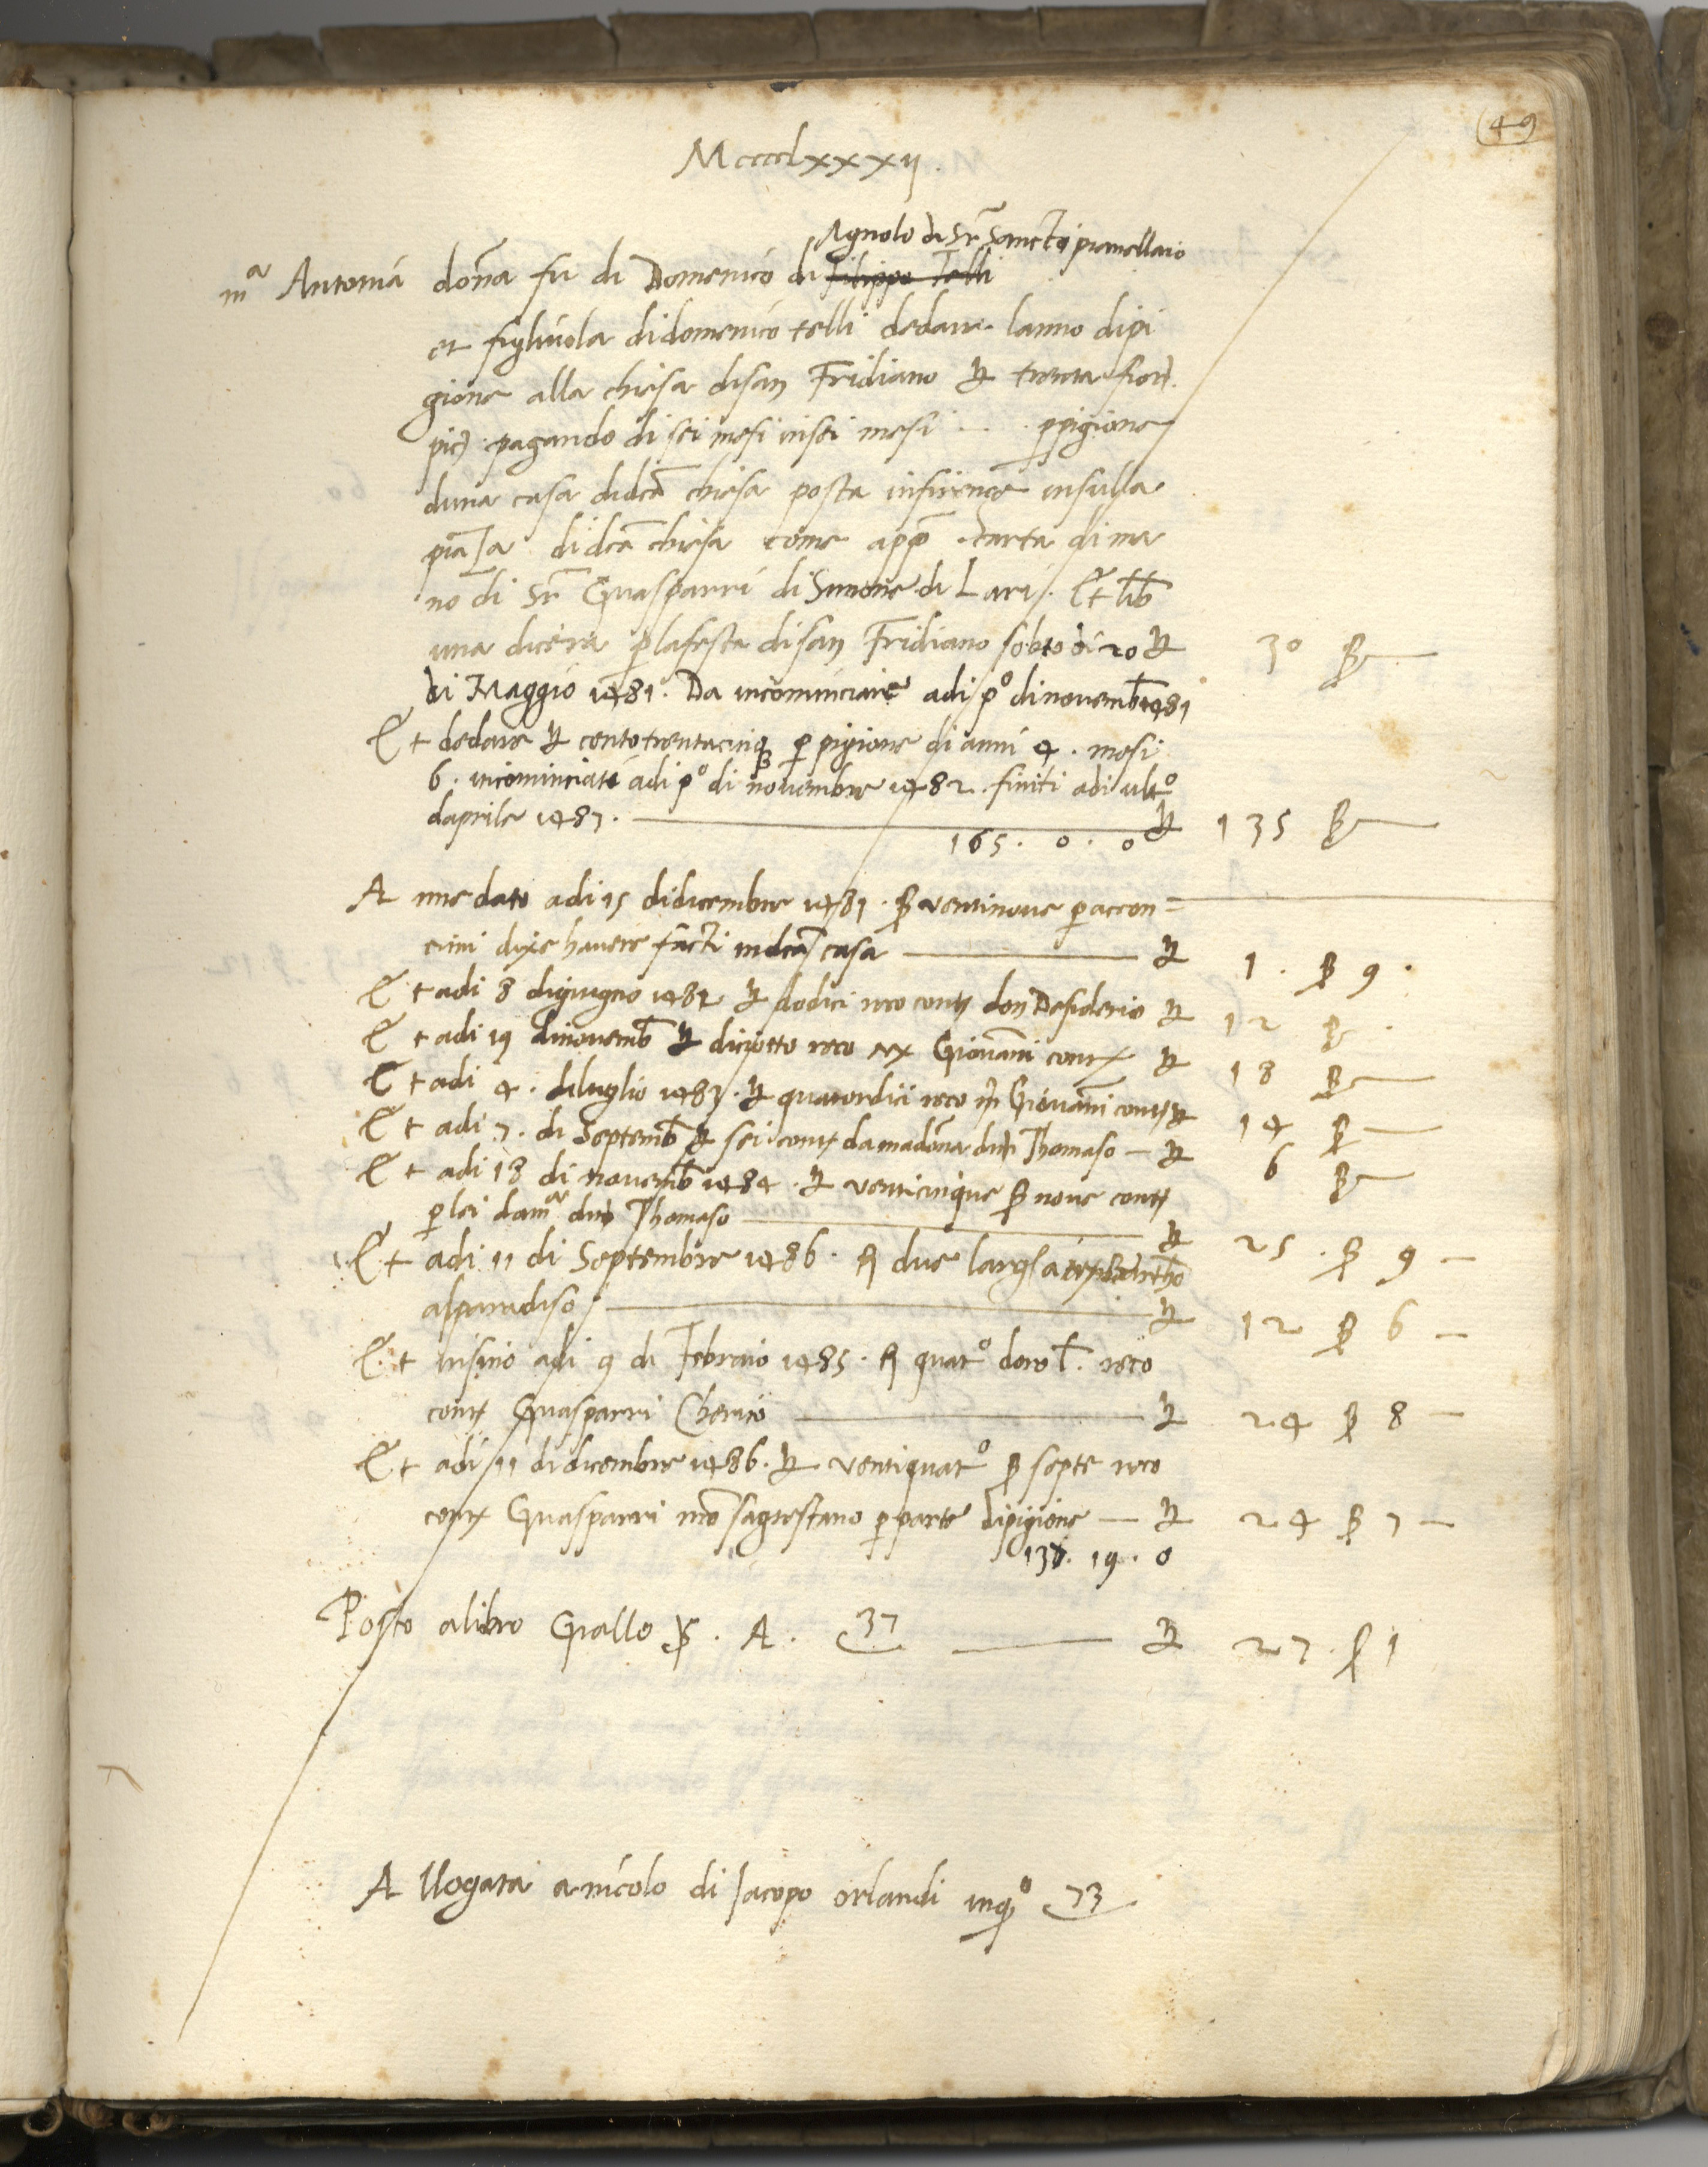 49
Mcccclxxxij.
Agnolo di Sr Sancto pianellaio
mᵃ Antonia dona fu di Domenico di Filippo Telli
et figliuola didomenico telli dedare lanno dipi
gione alla chiesa disan Fridiano ₶ trenta fior.
pic. pagando di sei mesi insei mesi ppigione
duna casa didca chiesa posta infirenze insulla
piaza didca chiesa come app carta di ma
no di Sr Guasparri di Simone di Lari. Et lib
una dicera plafesta disan Fridiano sotto di 20 ₶ 30 β
di Maggio 1481. Da incominciare adi pº dinovemb 1481
Et dedare ₶ centotrentacinq p pigione di anni 4. mesi
6. incominciati adi pº di novembre 1482. finiti adi ultº
daprile 1487. ₶ 135 β
165. 0. 0
A nne dato adi 15 didicembre 1481. β ventinove paccon=
cimi dixe havere facti indca casa ₶ 1. β 9.
Et adi 8 digiugno 1482 ₶ dodici reco cont don Desiderio ₶ 12 β
Et adi 19 dinovemb ₶ diciotto reco Giovanni cont ₶ 18 β
Et adi 4. diluglio 1483. ₶ quatordici reco Giovanni cont ₶ 14 β
Et adi 7. di Septemb ₶ sei cont da madona Thomaso ₶ 6 β
Et adi 18 di novemb 1484. ₶ venticinque β nove cont
plei damᵃ Thomaso ₶ 25. β 9
Et adi 11 di Septembre 1486. due largi
alparadiso ₶ 12 β 6
Et insino adi 9 di Febraio 1485. quatº doro l. reco
cont Guasparri Cherico ₶ 24 β 8
Et adi 11 didicembre 1486. ₶ ventiquatº β septe reco
cont Guasparri nro sagrestano pparte dipigione ₶ 24 β 7
137. 19. 0
Posto alibro Giallo S. A. 37 ₶ 27. β 1
A llogata anicolo di Jacopo orlandi inqº 73